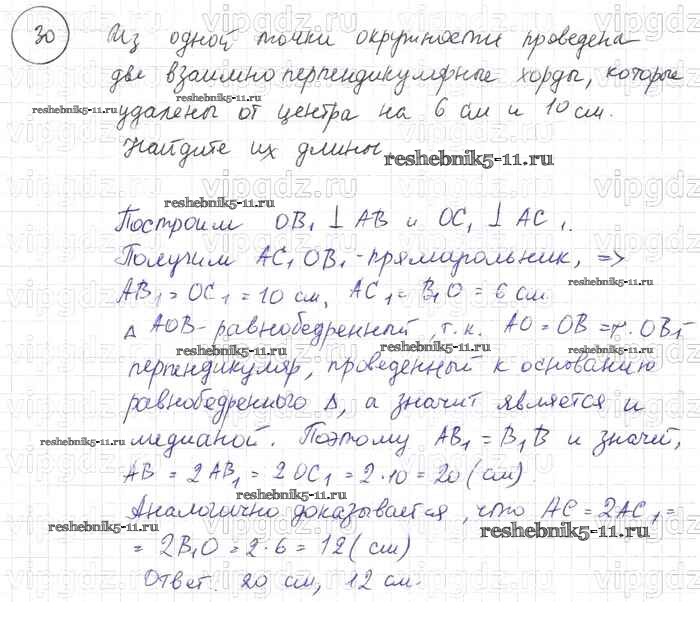 30 Из одной точки окружности проведена
две взаимно перпендикулярные хорды, которые
удалены от центра на 6 см и 10 см.
Найдите их длины.
Построим OB₁ ⊥ AB и OC₁ ⊥ AC₁.
Получим AC₁OB₁-прямарольник, =>
AB₁ = OC₁ = 10 см, AC₁ = B₁O = 6 см
Δ AOB-равнобедренный, т.к. AO = OB = r. OB₁-
перпендикуляр, проведенный к основанию
равнобедренного Δ, а значит является и
медианой. Поэтому AB₁ = B₁B и значит,
AB = 2AB₁ = 2OC₁ = 2·10 = 20 (см)
Аналогично доказывается, что AC = 2AC₁ =
= 2B₁O = 2·6 = 12 (см)
Ответ. 20 см, 12 см.
reshebnik5-11.ru
vipgdz.ru